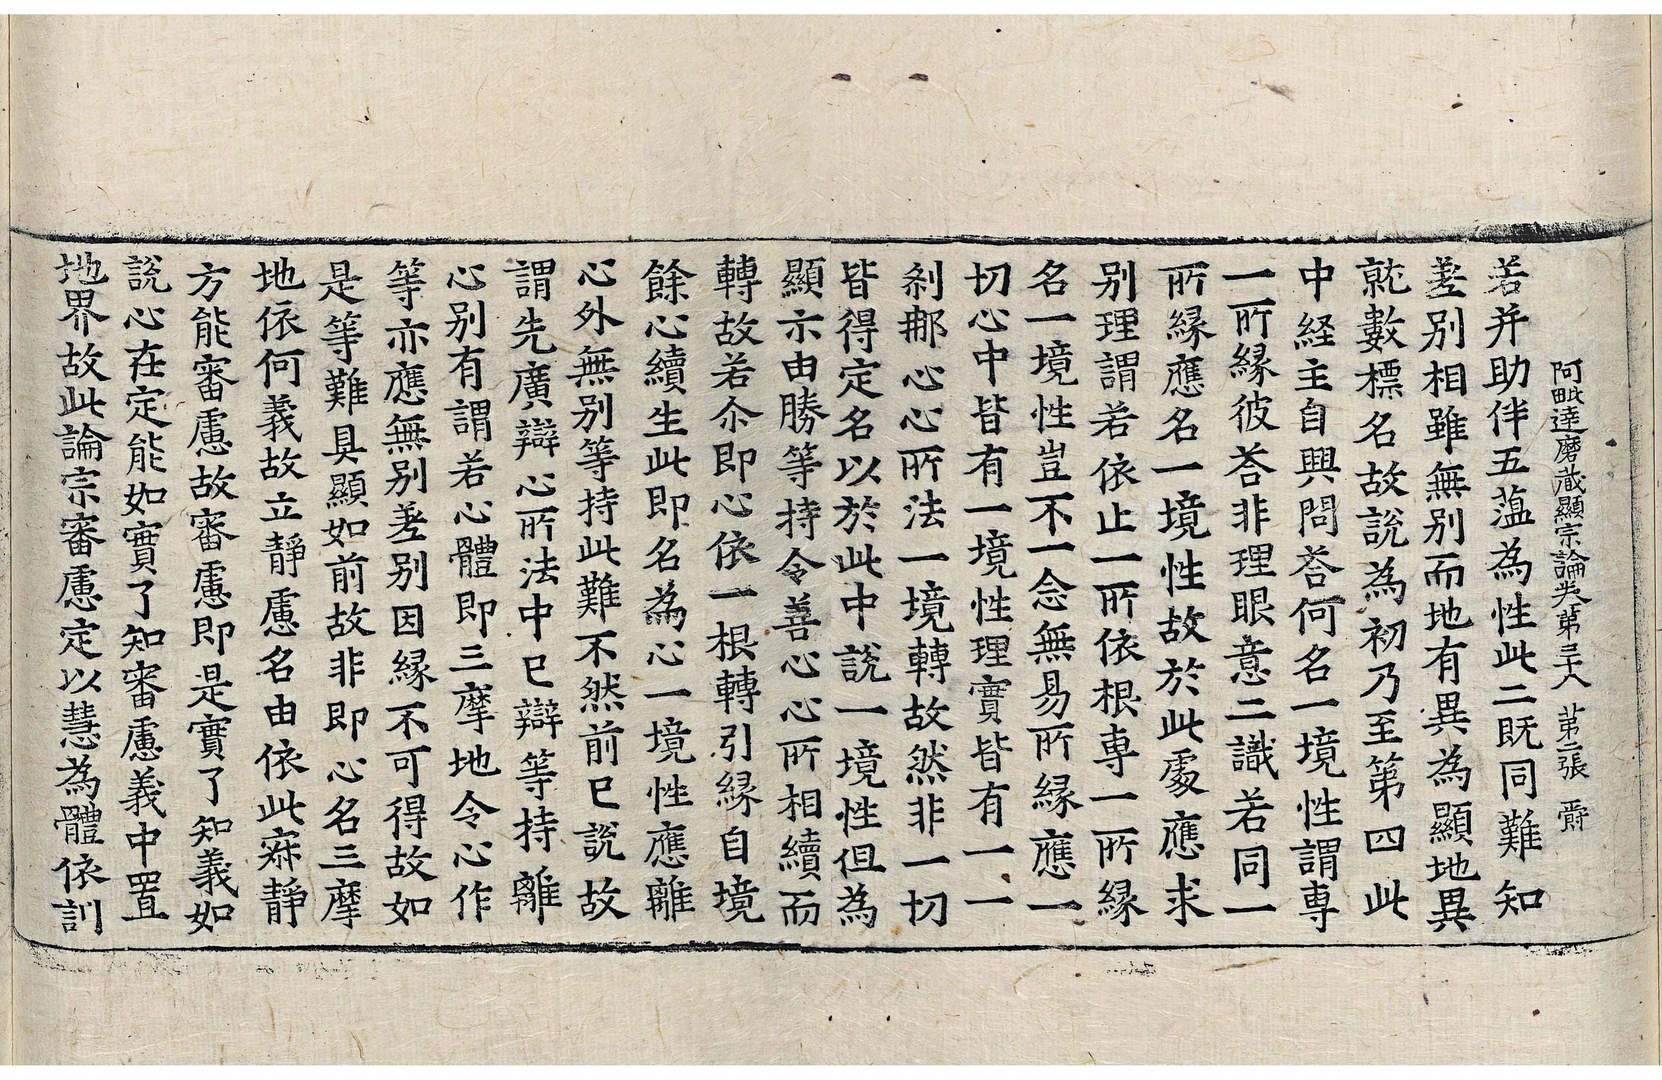 阿毗達磨藏顯宗論卷第三十八 第二張 爵
若并助伴五蕰為性此二既同難知
差別相雖無別而地有異為顯地異
就數標名故說為初乃至第四此
中経主自興問荅何名一境性謂專
一所縁彼荅非理眼意二識若同一
所縁應名一境性故於此處應求
別理謂若依止一所依根專一所縁
名一境性豈不一念無易所縁應一
切心中皆有一境性理實皆有一一
剎那心心所法一境轉故然非一切
皆得定名以於此中說一境性但為
顯示由勝等持令善心心所相續而
轉故若尒即心依一根轉引縁自境
餘心續生此即名為心一境性應離
心外無別等持此難不然前已說故
謂先廣辯心所法中已辯等持離
心別有謂若心體即三摩地令心作
等亦應無別差別因縁不可得故如
是等難具顯如前故非即心名三摩
地依何義故立靜慮名由依此寂靜
方能審慮故審慮即是實了知義如
說心在定能如實了知審慮義中置
地界故此論宗審慮定以慧為體依訓